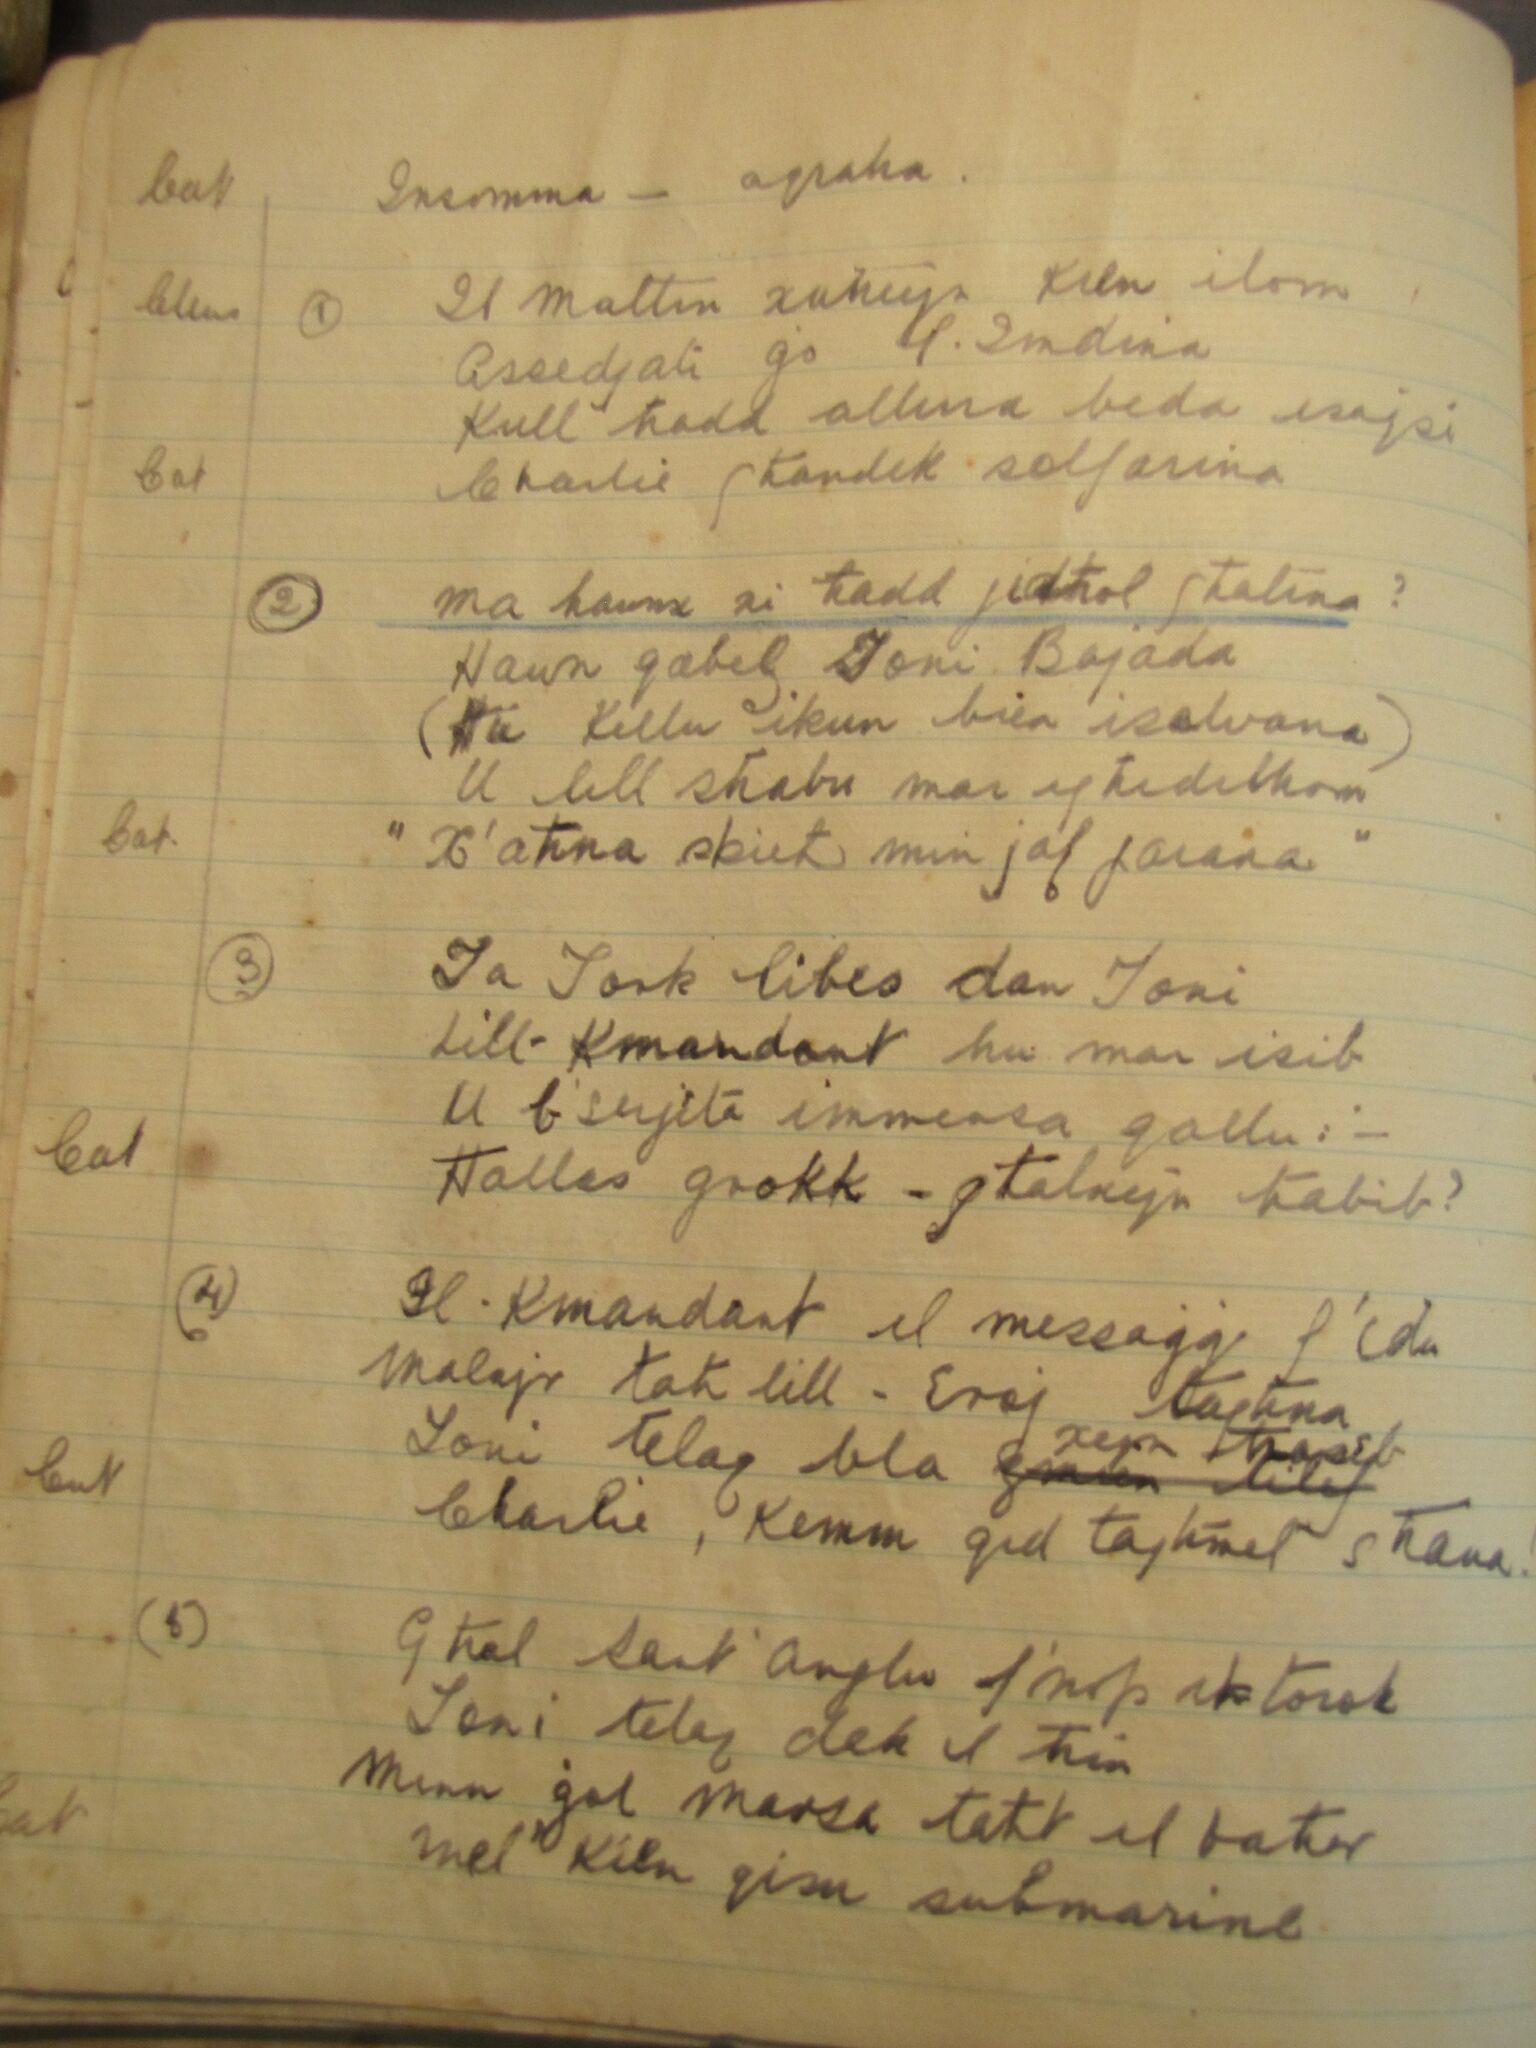 Cat Insomma - aqraha.
Clem ① Il Maltin xuhejn kien ilom
Assedjati go l. Imdina
Kull hadd allura beda isajjsi
Cat Charlie ghandek solfarina
② Ma hawnx xi hadd jidhol ghalina?
Hawn qabel Toni Bajada
(Hu kellu ikun biex isalvana)
U lill shabu mar ighedilhom
Cat. "X'ahna sbieh min jaf jarana"
③ Ta Tork libes dan Toni
Lill-Kmandant hu mar isib
U b'serjetà immensa qallu:-
Cat Halles grokk - ghalxejn habib?
④ Il-Kmandant el messagg f'idu
Malajr tah lill-Eroj taghna
Toni telaq bla xejn hasib
Cat Charlie, kemm qed taghmel shana!
(5) Ghal Sant Anglu f'nofs
Toni telaq dak il hin
Minn gol Marsa taht el bahar
Cat Mel kien qisu submarine